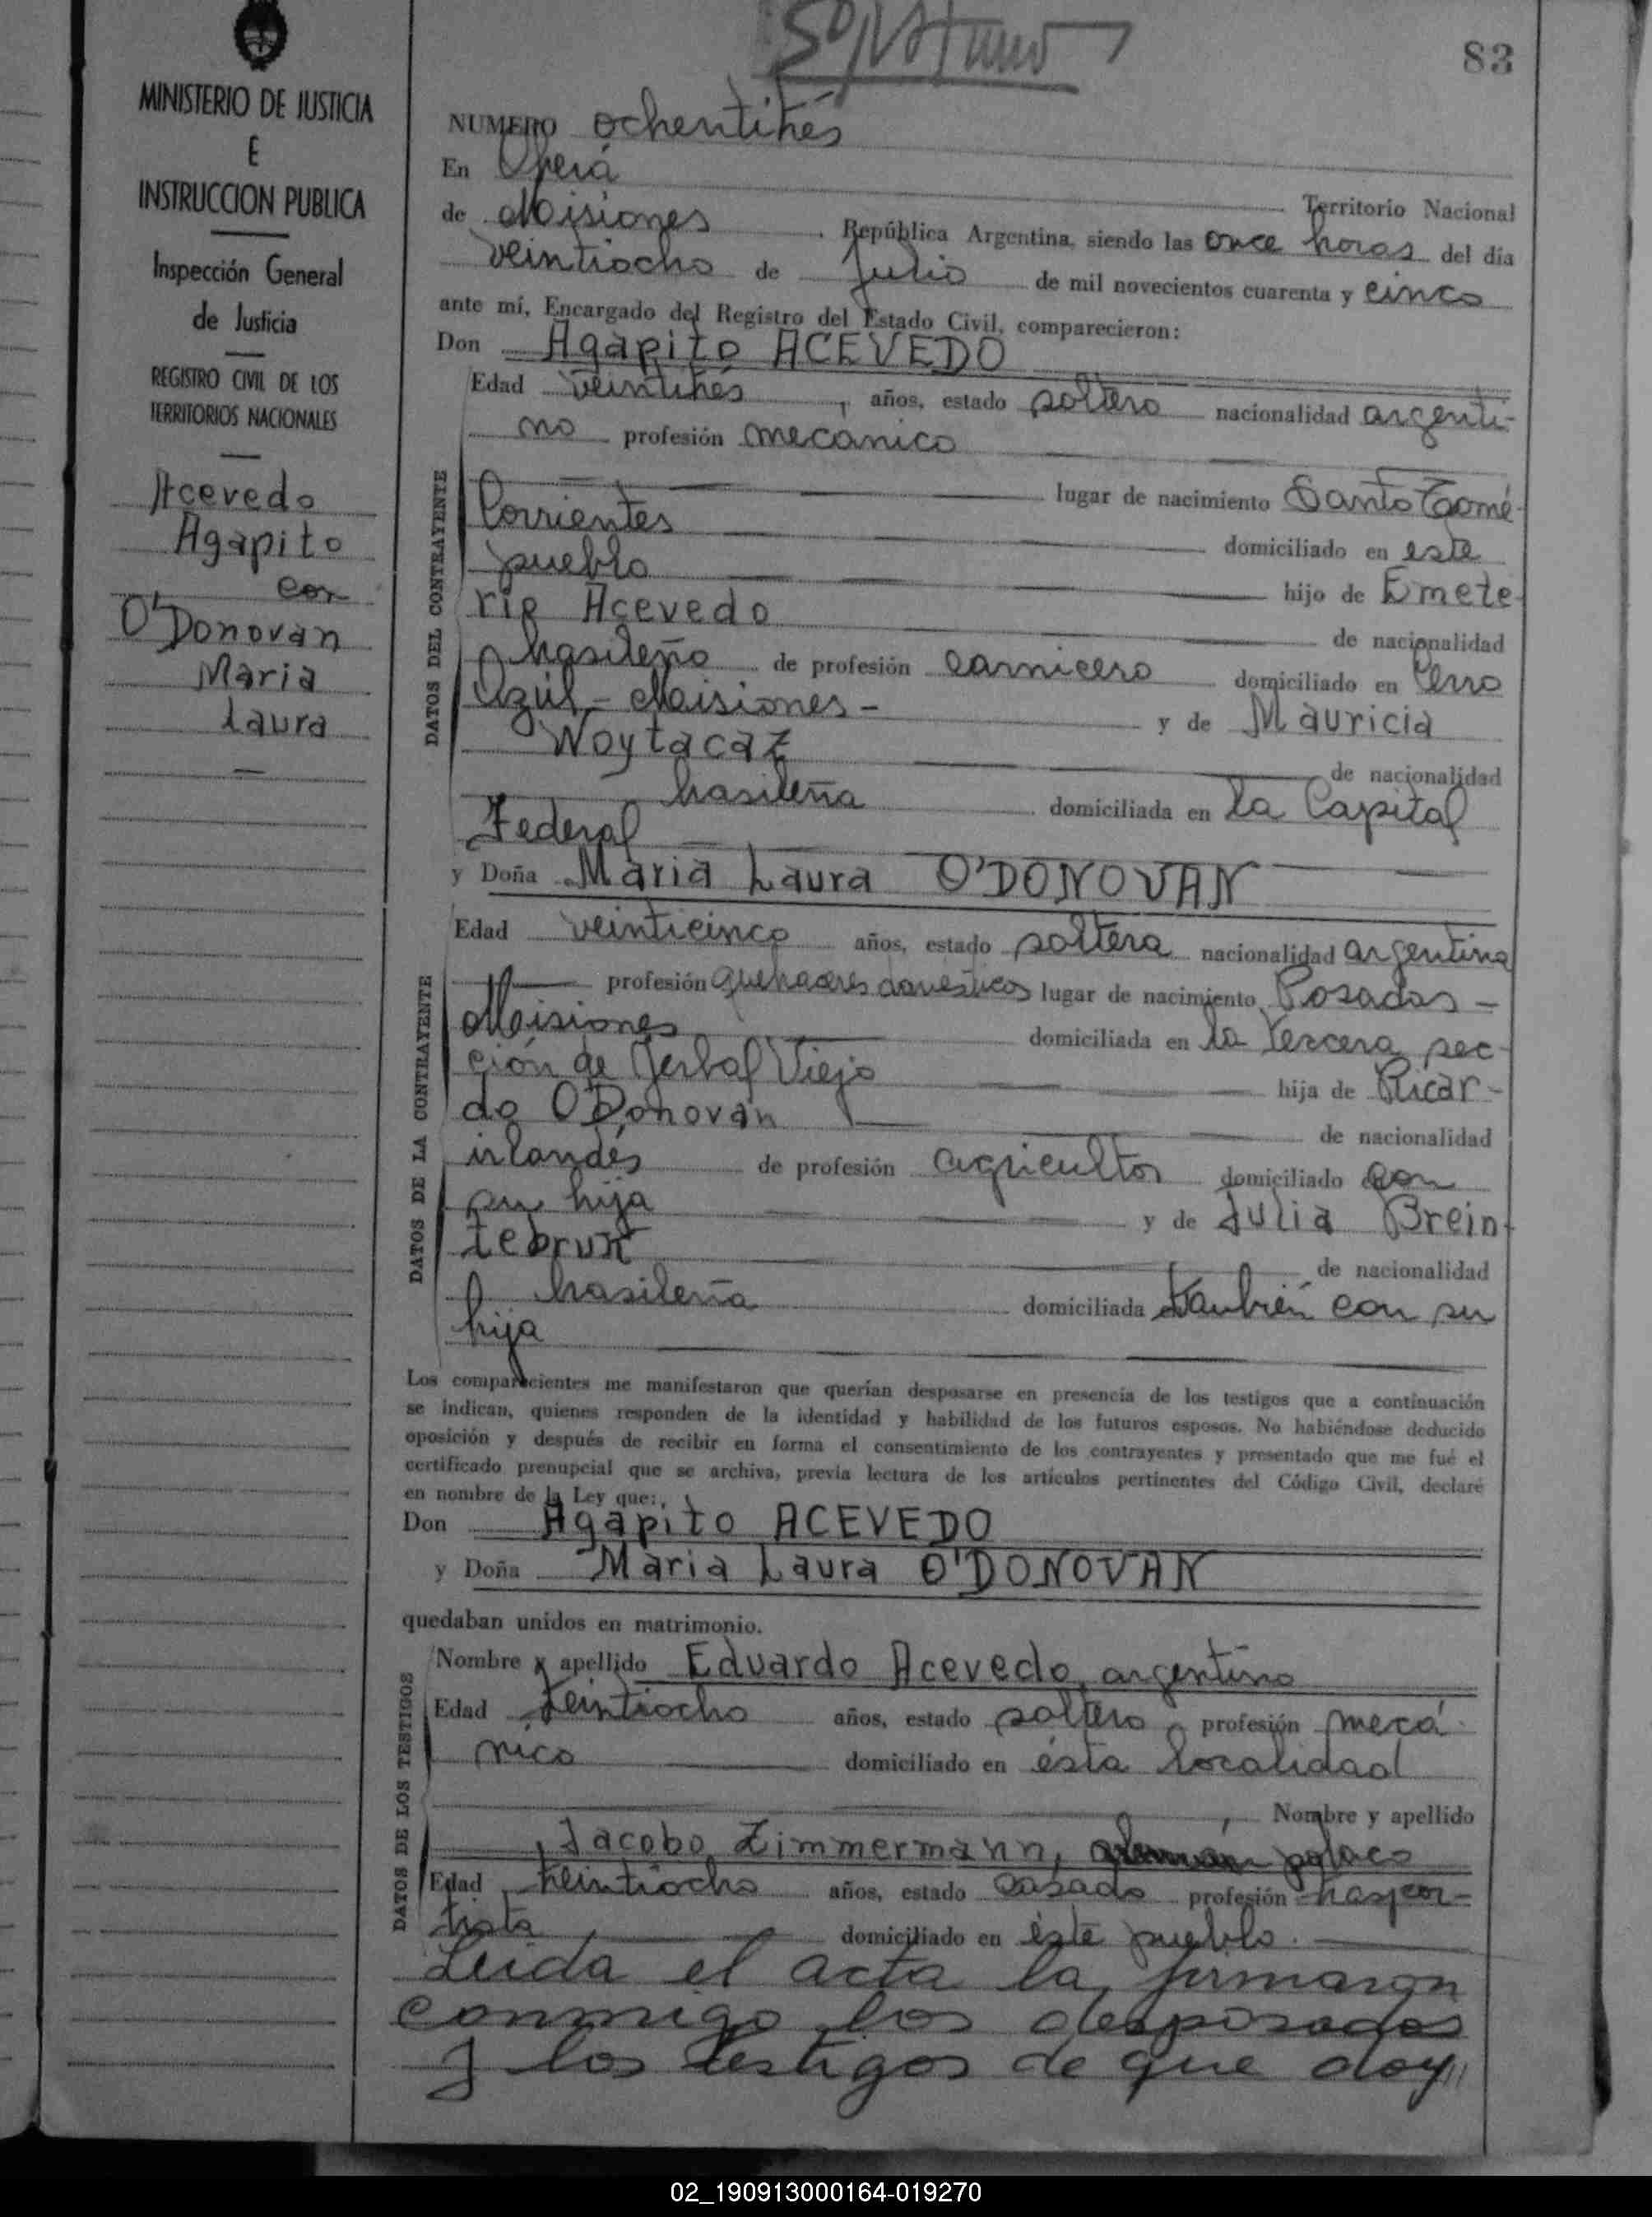 83
MINISTERIO DE JUSTICIA
E
INSTRUCCION PUBLICA
Inspección General
de Justicia
REGISTRO CIVIL DE LOS
TERRITORIOS NACIONALES
Acevedo
Agapito
con
O'Donovan
Maria
Laura
NUMERO ochentitrés
En Oberá
Territorio Nacional
de Misiones República Argentina, siendo las once horas del día
veintiocho de Julio de mil novecientos cuarenta y cinco
ante mí, Encargado del Registro del Estado Civil, comparecieron:
Don Agapito ACEVEDO
DATOS DEL CONTRAYENTE
Edad veintitrés, años, estado soltero nacionalidad argenti-
no profesión mecanico
lugar de nacimiento Santo Tomé-
Corrientes domiciliado en este
pueblo hijo de Emete-
rio Acevedo de nacionalidad
brasileño de profesión carnicero domiciliado en Cerro
Azúl - Misiones - y de Mauricia
Woytacaz de nacionalidad
brasileña domiciliada en la Capital
Federal
y Doña Maria Laura O'DONOVAN
DATOS DE LA CONTRAYENTE
Edad veinticinco años, estado soltera nacionalidad argentina
profesión quehaceres domésticos lugar de nacimiento Posadas -
Misiones domiciliada en la tercera sec-
ción de Yerbal Viejo hija de Ricar-
do O'Donovan de nacionalidad
irlandés de profesión agricultor domiciliado con
su hija y de Julia Brein-
tebrun de nacionalidad
brasileña domiciliada también con su
hija
Los comparecientes me manifestaron que querían desposarse en presencia de los testigos que a continuación
se indican, quienes responden de la identidad y habilidad de los futuros esposos. No habiéndose deducido
oposición y después de recibir en forma el consentimiento de los contrayentes y presentado que me fué el
certificado prenupcial que se archiva, previa lectura de los artículos pertinentes del Código Civil, declaré
en nombre de la Ley que:
Don Agapito ACEVEDO
y Doña Maria Laura O'DONOVAN
quedaban unidos en matrimonio.
DATOS DE LOS TESTIGOS
Nombre y apellido Eduardo Acevedo, argentino
Edad veintiocho años, estado soltero profesión mecá-
nico domiciliado en ésta localidad
Nombre y apellido
Jacobo Zimmermann, polaco
Edad treintiocho años, estado casado profesión traspor-
tista domiciliado en éste pueblo.
Leida el acta la firmaron
conmigo los desposados
y los testigos de que doy//
02_190913000164-019270